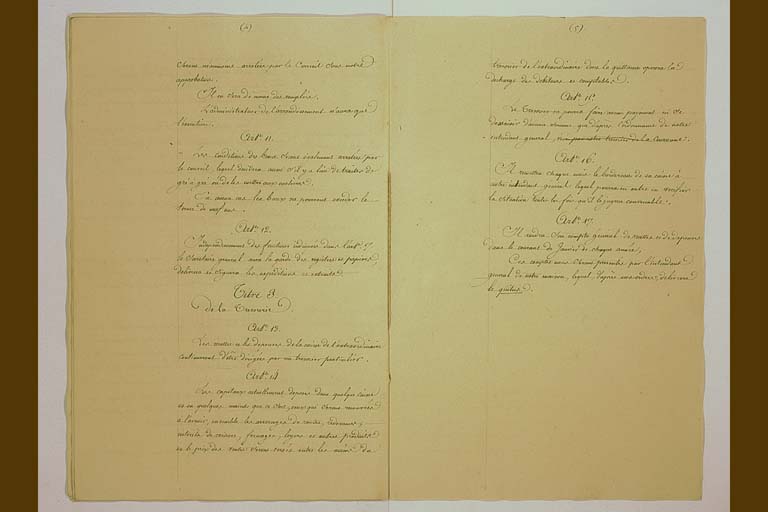 (4)
seront nommés arrêtés par le Conseil sous notre
approbation.
Il en sera de même des employés.
L'administration de l'arrondissement n'aura que
l'exécution.
Art.e 11.
Les conditions des baux seront également arrêtées par
le conseil, lequel décidera aussi s'il y a lieu de traiter de
gré à gré ou de les mettre aux enchères.
En aucun cas les baux ne pourront excéder le
terme de neuf ans.
Art.e 12.
Indépendamment des fonctions indiquées dans l'art. 7
le Secrétaire général aura la garde des registres et papiers
délivrera et signera les expéditions et extraits.
Titre 3
De la Trésorerie.
Art.e 13.
Les recettes et les dépenses de la caisse de l'extraordinaire
continueront d'être dirigées par un trésorier particulier.
Art.e 14
Les capitaux actuellement déposés dans quelque caisse
et en quelques mains que ce soit, ceux qui seront recouvrés
à l'avenir, ensemble les arrérages de rentes, redevances,
intérêts de créances, fermages, loyers et autres produits
et le prix des ventes seront versés entre les mains du
(5)
trésorier de l'extraordinaire dont la quittance opérera la
décharge des débiteurs et comptables.
Art.e 15.
Le Trésorier ne pourra faire aucun payement ni se
dessaisir d'aucune somme que d'après l'ordonnance de notre
intendant général,
Art.e 16.
Il remettra chaque mois le bordereau de sa caisse à
notre intendant général lequel pourra en outre en vérifier
la situation toutes les fois qu'il le jugera convenable.
Art.e 17.
Il rendra son compte général de recettes et de dépenses
dans le courant de Janvier de chaque année.
Ces comptes nous seront présentés par l'intendant
général de notre maison, lequel d'après nos ordres, délivrera
le quitus.